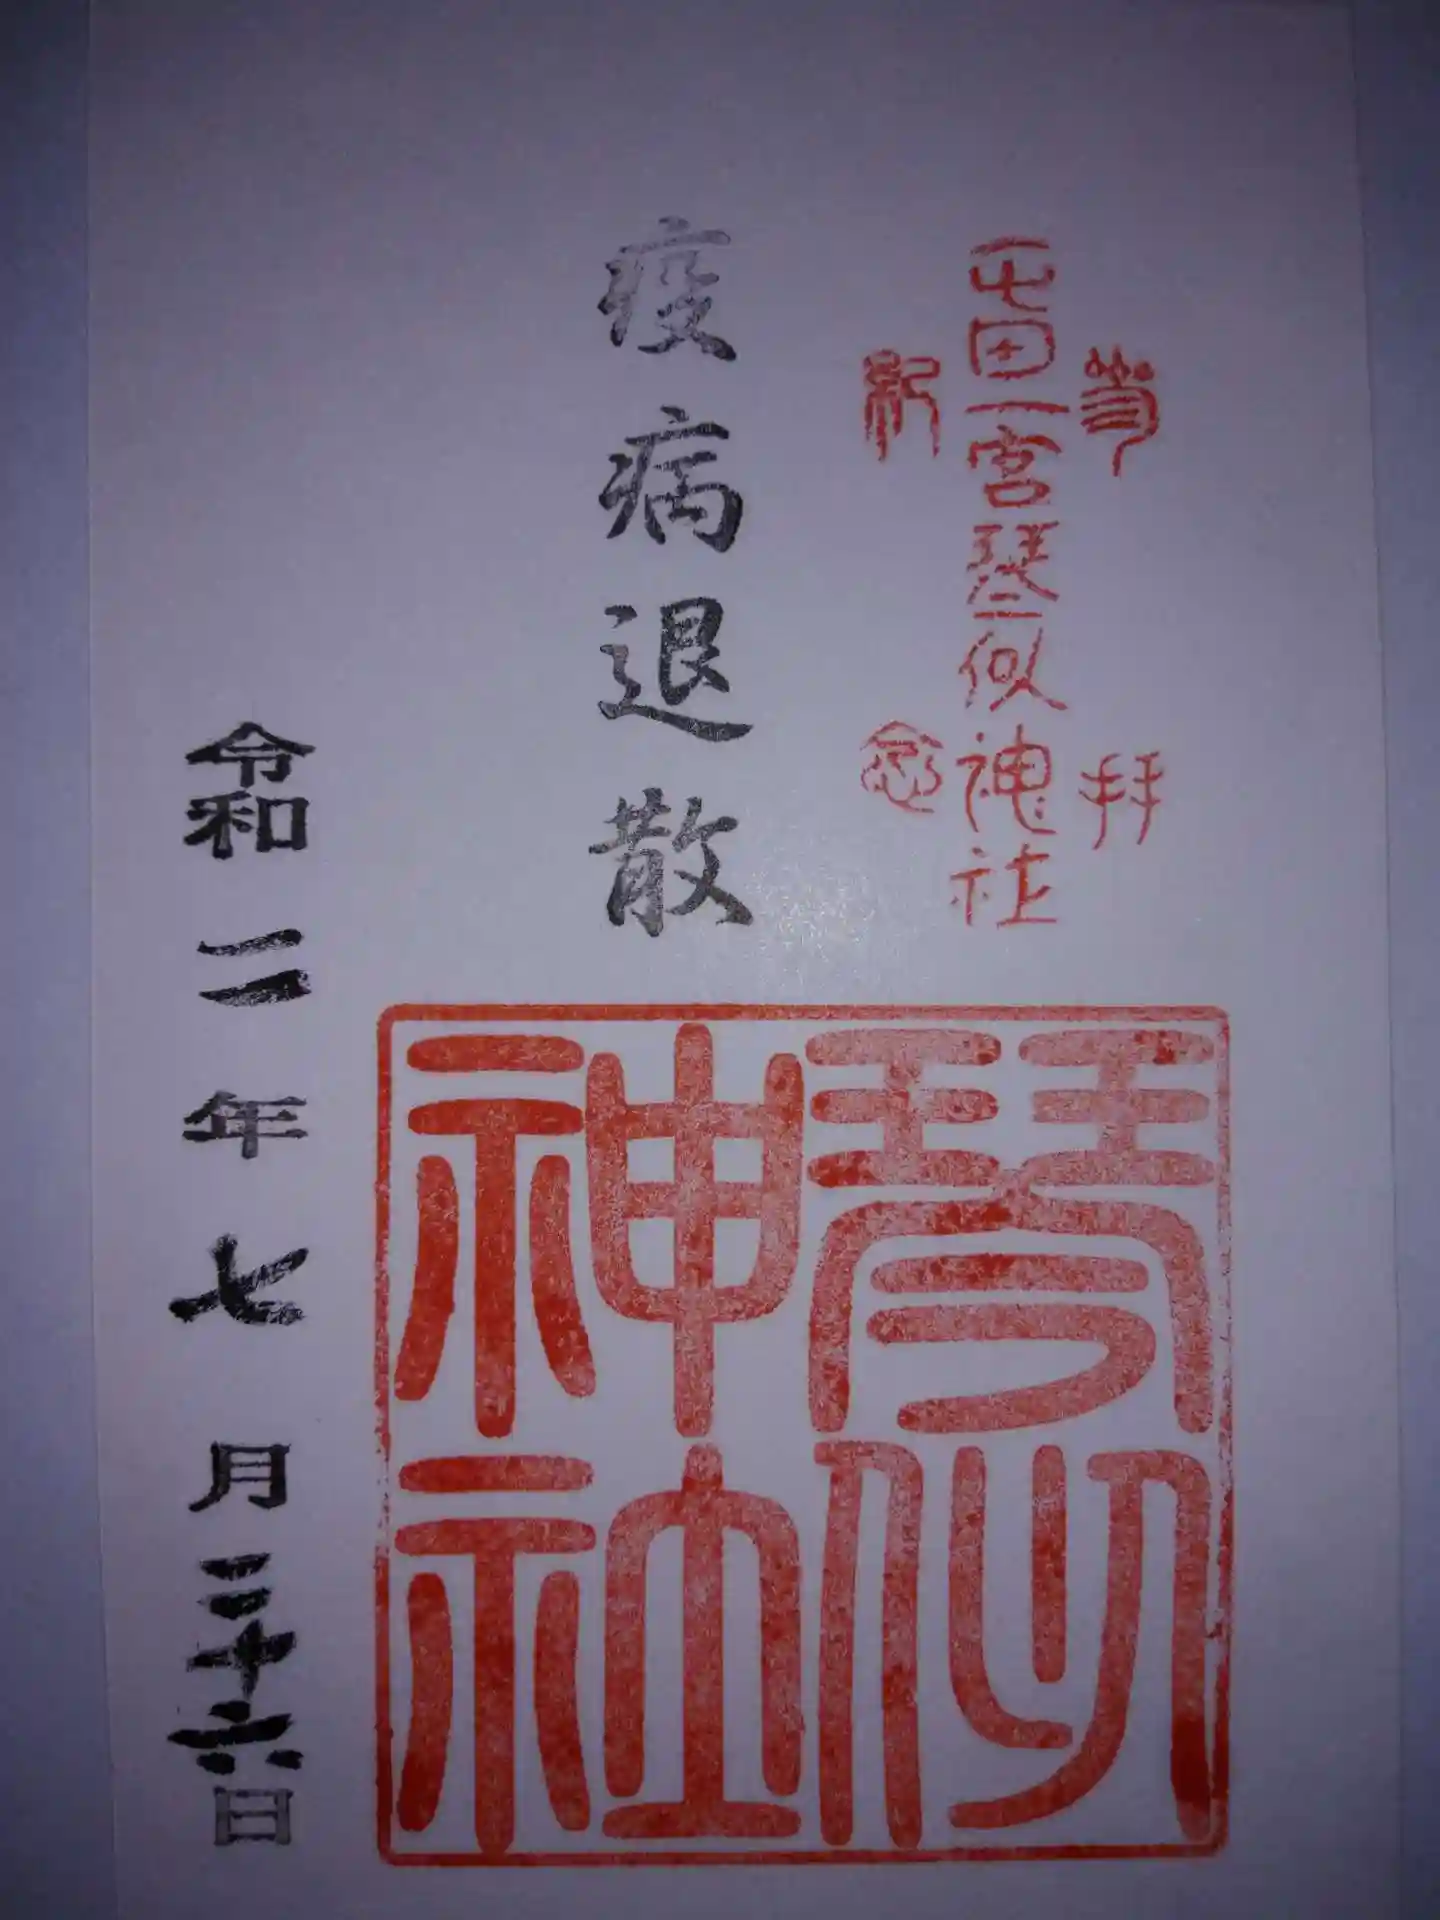 参拝
屯田一宮琴似神社
紀念
疫病退散
琴似
神社
令和二年七月二十六日